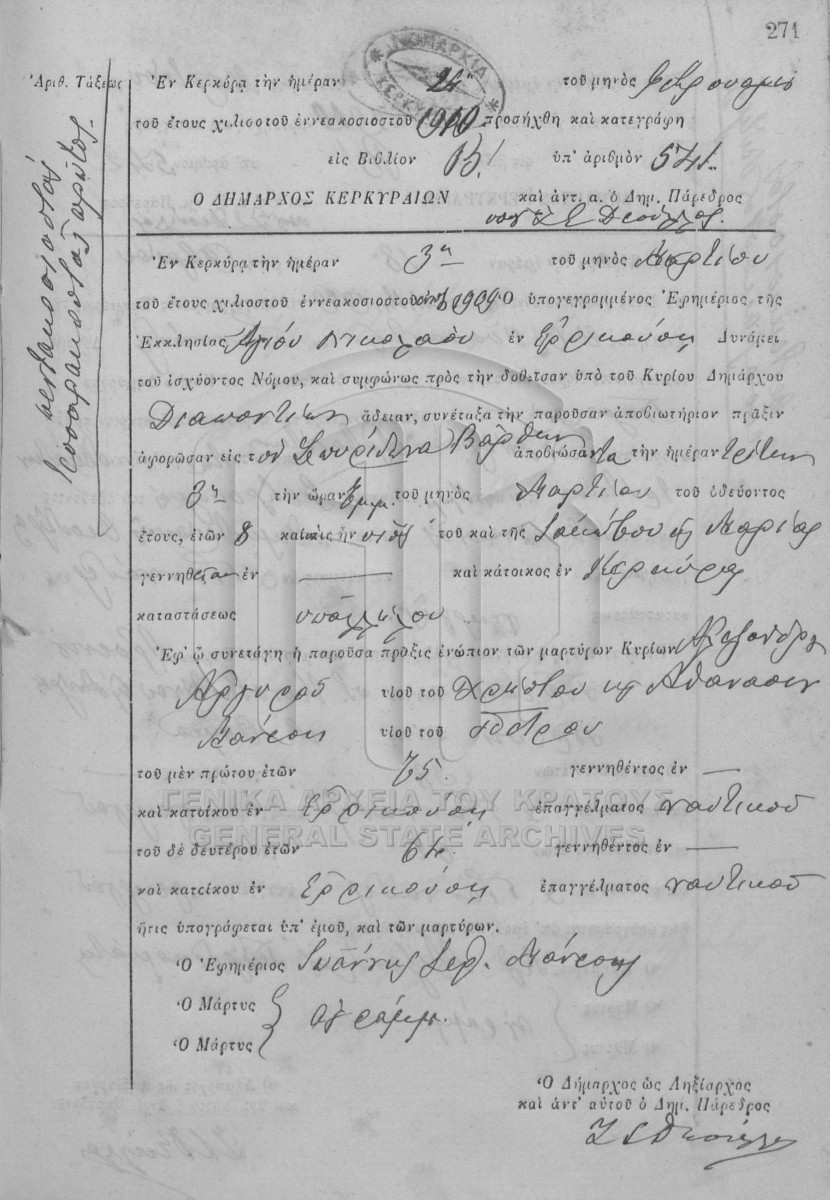 271
ΝΟΜΑΡΧΙΑ
ΚΕΡΚΥΡΑΣ
Ἀριθ. Τάξεως
πεντακοσιοστὸς
τεσσαρακοστὸς πρῶτος.
Ἐν Κερκύρᾳ τὴν ἡμέραν 24η τοῦ μηνὸς
τοῦ ἔτους χιλιοστοῦ ἐννεακοσιοστοῦ 1910 προσήχθη καὶ κατεγράφη
εἰς Βιβλίον Β! ὑπ' ἀριθμὸν 541.
Ὁ ΔΗΜΑΡΧΟΣ ΚΕΡΚΥΡΑΙΩΝ καὶ ἀντ. α. ὁ Δημ. Πάρεδρος
Ἐν Κερκύρᾳ τὴν ἡμέραν 3η τοῦ μηνὸς Μαρτίου
τοῦ ἔτους χιλιοστοῦ ἐννεακοσιοστοῦ 1909 Ὁ ὑπογεγραμμένος Ἐφημέριος τῆς
Ἐκκλησίας Ἁγίου Νικολάου ἐν Ἐρρικούσῃ Δυνάμει
τοῦ ἰσχύοντος Νόμου, καὶ συμφώνως πρὸς τὴν δοθεῖσαν ὑπὸ τοῦ Κυρίου Δημάρχου
Διαποντίων ἄδειαν, συνέταξα τὴν παροῦσαν ἀποβιωτήριον πρᾶξιν
ἀφορῶσαν εἰς τὸν Σπυρίδωνα Βάρθην ἀποβιώσαντα τὴν ἡμέραν τρίτην
3η τὴν ὥραν τοῦ μηνὸς Μαρτίου τοῦ ὁδεύοντος
ἔτους, ἐτῶν 8 καὶ ὅστις ἦν υἱὸς τοῦ καὶ τῆς Ἰακώβου κ Μαρίας
γεννηθεὶς ἐν — καὶ κάτοικος ἐν Κερκύρᾳ
καταστάσεως ὑπαλλήλου
Ἐφ' ᾧ συνετάγη ἡ παροῦσα πρᾶξις ἐνώπιον τῶν μαρτύρων Κυρίων Ἀλεξάνδρου
Ἀργυροῦ υἱοῦ τοῦ Χρήστου κ Ἀθανασίου
Μανέση υἱοῦ τοῦ Πέτρου
τοῦ μὲν πρώτου ἐτῶν 75 γεννηθέντος ἐν —
καὶ κατοίκου ἐν Ἐρρικούσῃ ἐπαγγέλματος ναυτικοῦ
τοῦ δὲ δευτέρου ἐτῶν 64 γεννηθέντος ἐν —
καὶ κατοίκου ἐν Ἐρρικούσῃ ἐπαγγέλματος ναυτικοῦ
ἥτις ὑπογράφεται ὑπ' ἐμοῦ, καὶ τῶν μαρτύρων.
Ὁ Ἐφημέριος Ἰωάννης Μανέσης
Ὁ Μάρτυς
ἀγράμμ.
Ὁ Μάρτυς
Ὁ Δήμαρχος ὡς Ληξίαρχος
καὶ ἀντ' αὐτοῦ ὁ Δημ. Πάρεδρος
ΓΕΝΙΚΑ ΑΡΧΕΙΑ ΤΟΥ ΚΡΑΤΟΥΣ
GENERAL STATE ARCHIVES